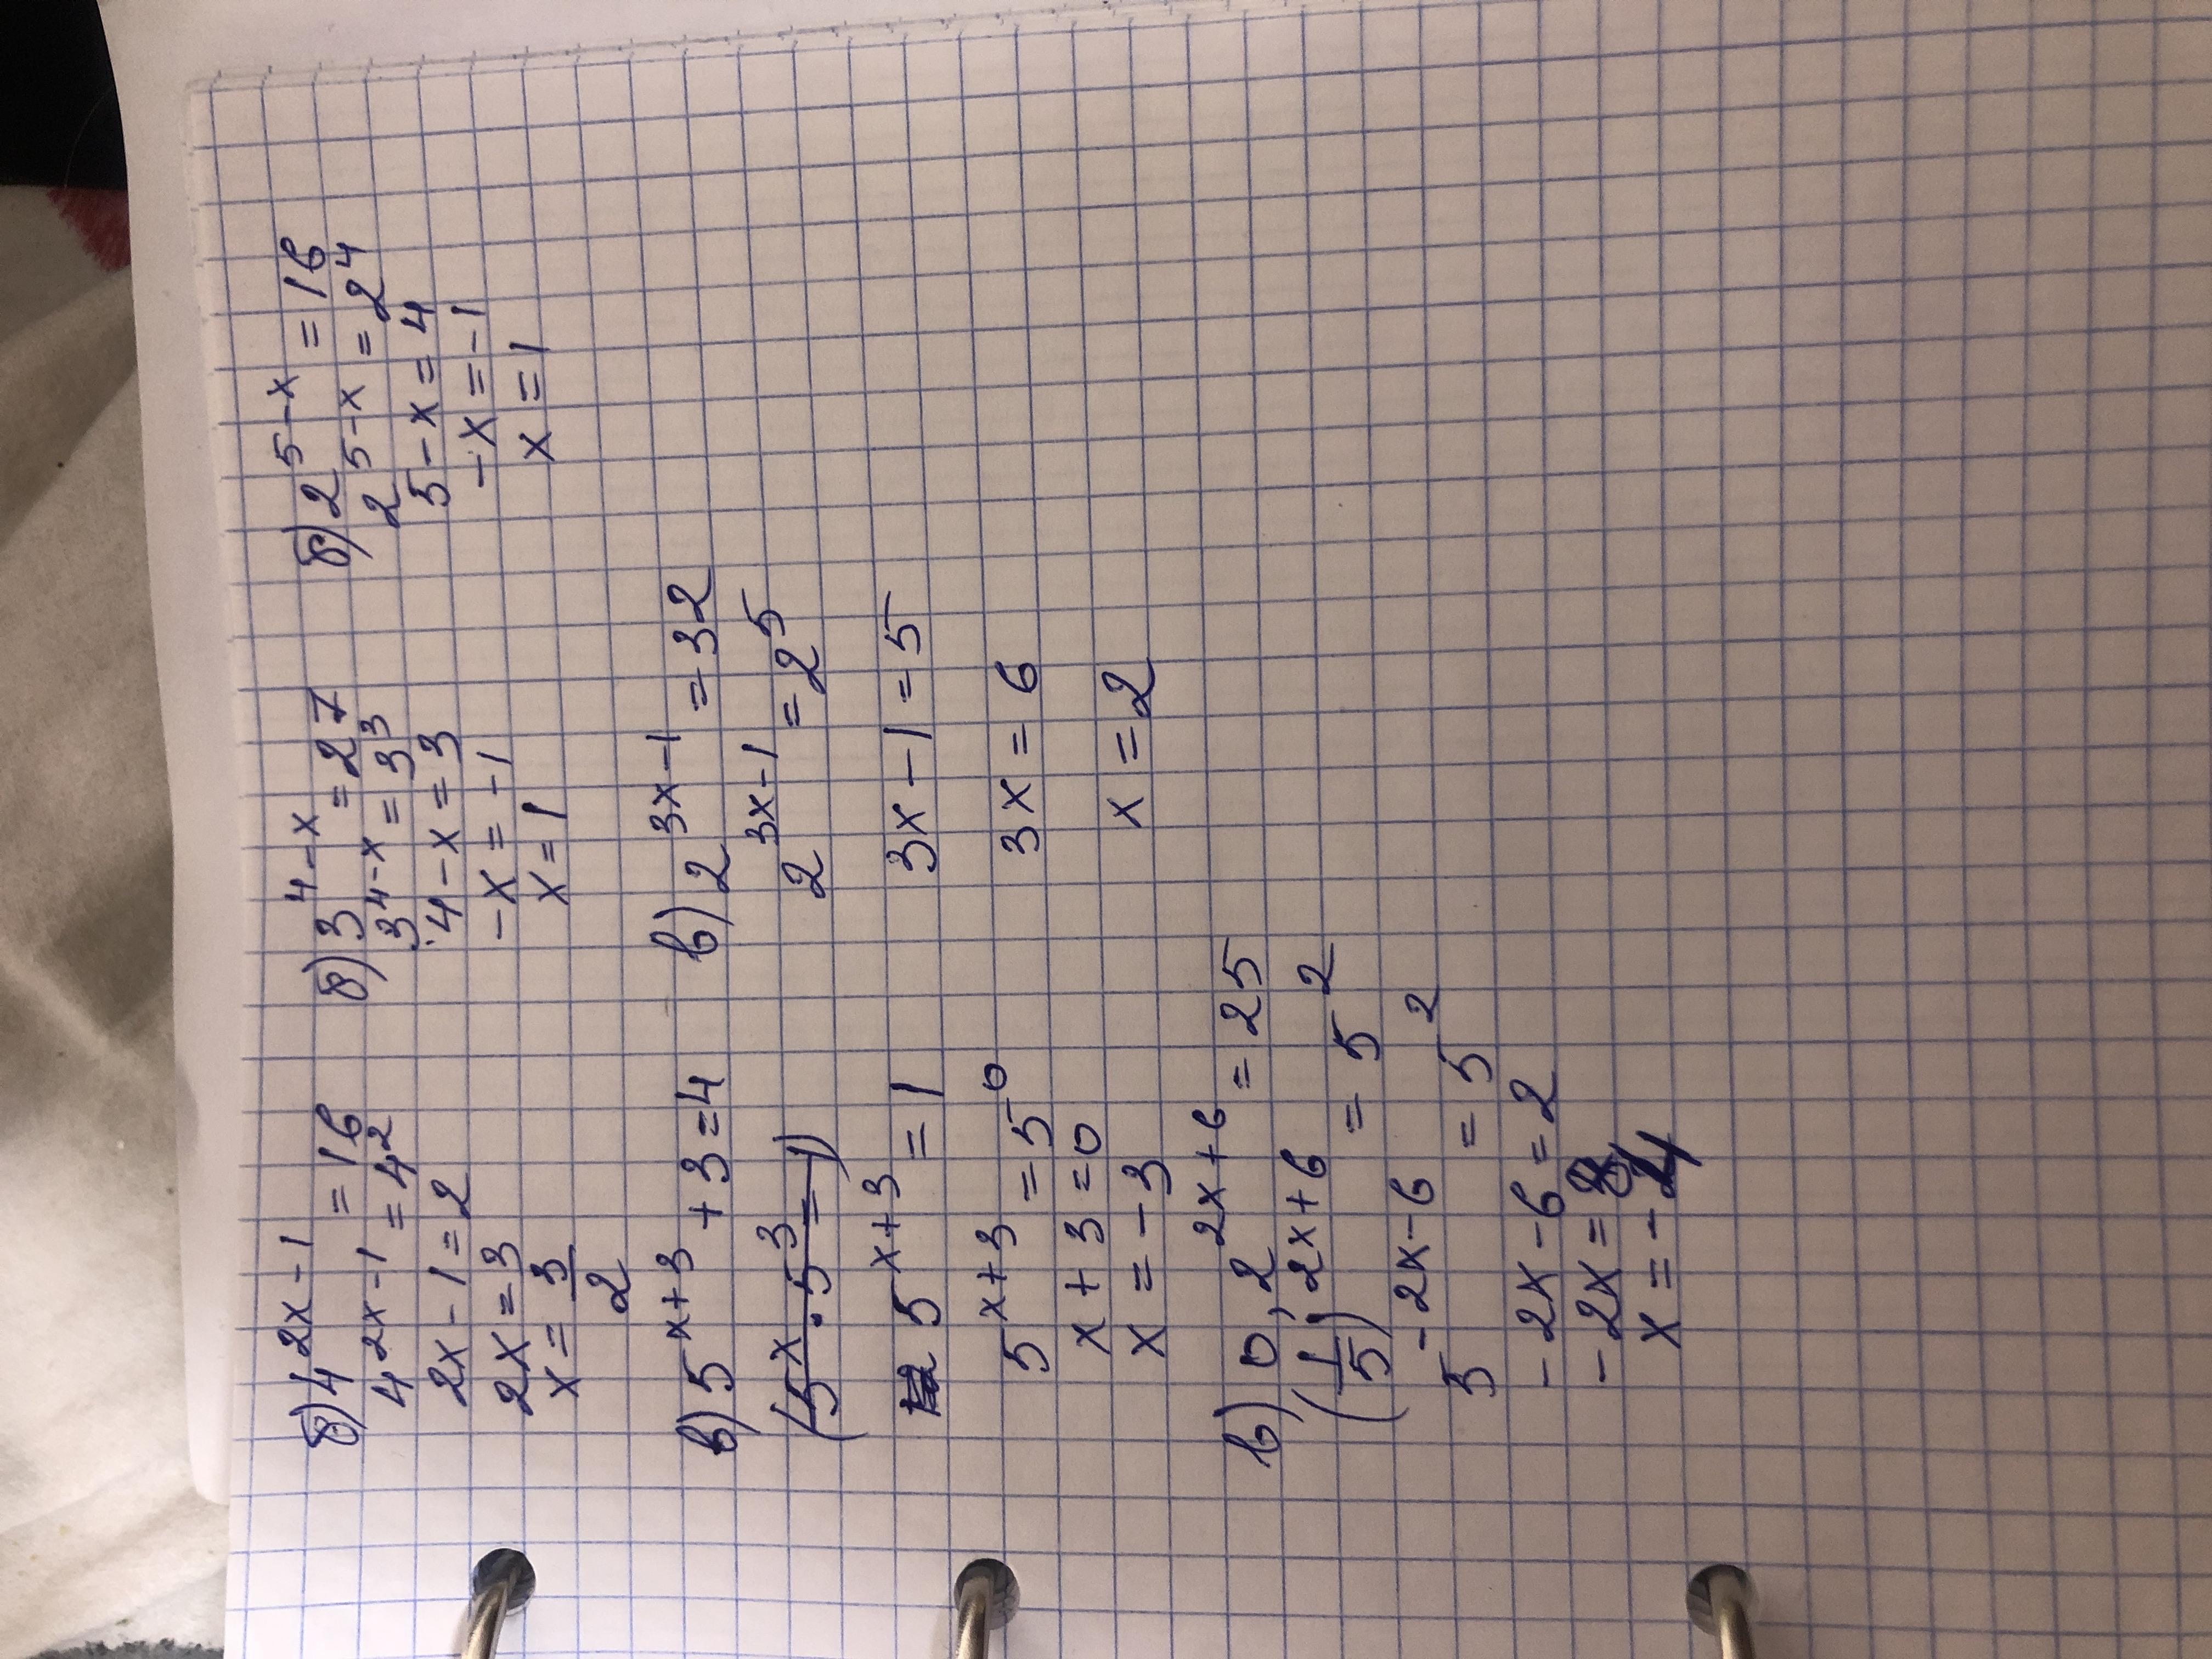 б) 4^{2x-1} = 16
4^{2x-1} = 4^2
2x-1=2
2x=3
x=\frac{3}{2}
б) 3^{4-x} = 27
3^{4-x} = 3^3
4-x=3
-x=-1
x=1
б) 2^{5-x} = 16
2^{5-x} = 2^4
5-x=4
-x=-1
x=1
в) 5^{x+3} +3=4
(5^x · 5^3 = 1)
5^{x+3} = 1
5^{x+3} = 5^0
x+3=0
x=-3
в) 2^{3x-1} = 32
2^{3x-1} = 2^5
3x-1=5
3x=6
x=2
в) 0,2^{2x+6} = 25
(\frac{1}{5})^{2x+6} = 5^2
5^{-2x-6} = 5^2
-2x-6=2
-2x=8
x=-4